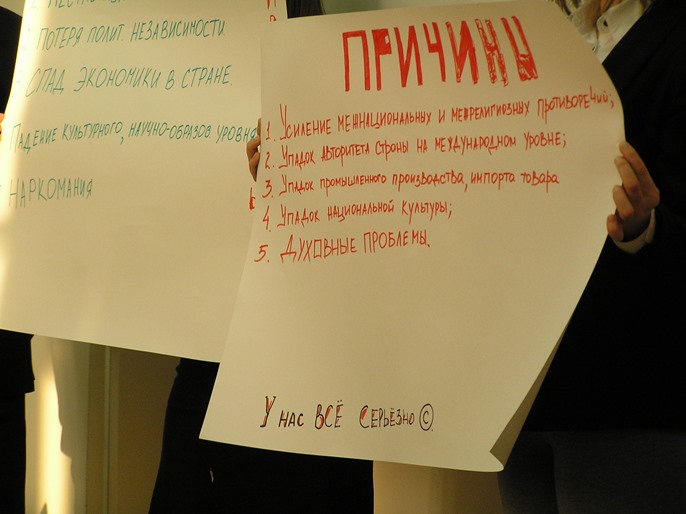 ПОТЕРЯ ПОЛИТ. НЕЗАВИСИМОСТИ
СПАД ЭКОНОМИКИ В СТРАНЕ.
ПАДЕНИЕ КУЛЬТУРНОГО, НАУЧНО-ОБРАЗОВ УРОВНЯ
НАРКОМАНИЯ
ПРИЧИНЫ
1. УСИЛЕНИЕ МЕЖНАЦИОНАЛЬНЫХ И МЕЖРЕЛИГИОЗНЫХ ПРОТИВОРЕЧИЙ;
2. УПАДОК АВТОРИТЕТА СТРАНЫ НА МЕЖДУНАРОДНОМ УРОВНЕ;
3. УПАДОК ПРОМЫШЛЕННОГО ПРОИЗВОДСТВА, ИМПОРТА ТОВАРА
4. УПАДОК НАЦИОНАЛЬНОЙ КУЛЬТУРЫ;
5. ДУХОВНЫЕ ПРОБЛЕМЫ.
У НАС ВСЁ СЕРЬЁЗНО ©.